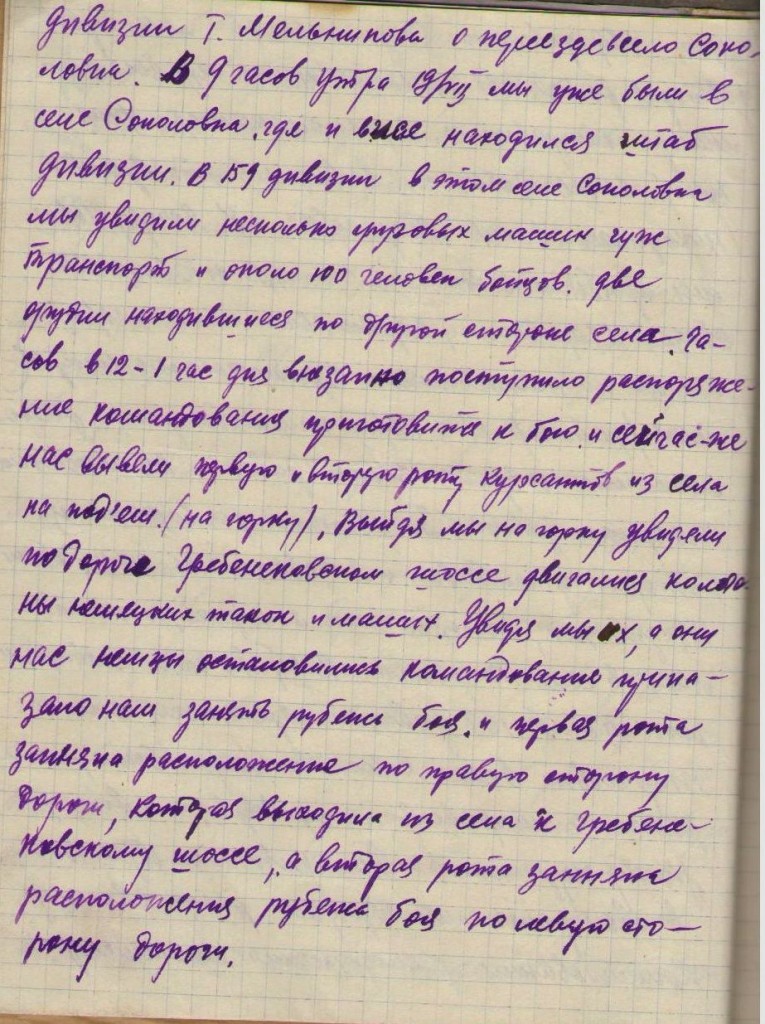 дивизии т. Мельникова о переезде в село Соко-
ловка. В 9 часов утра 19/VIII мы уже были в
селе Соколовка, где и выше находился штаб
дивизии. В 159 дивизии в этом селе Соколовка
мы увидили несколько грузовых машин гуж
транспорт и около 100 человек бойцов. две
другии находившиеся по другой стороне села. Ча-
сов в 12-1 час дня внезапно поступило распоряже-
ние командования приготовится к бою и сейчас-же
нас вывели первую и вторую роту курсантов из села
на под'ем. (на горку), Выйдя мы на горку увидели
по дороге Гребенковском шоссе двигалися колон-
ны немецких танков и машин. Увидя мы их, а они
нас немцы остановились командование прика-
зало нам занять рубежи боя. и первая рота
заняла расположение по правую сторону
дороги, которая выходила из села к Гребен-
ковскому шоссе, а вторая рота заняла
расположения рубежа боя по левую сто-
рону дороги.